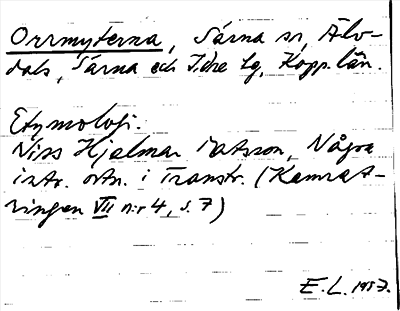 Orrmyterna, Särna sn, Älv-
dals, Särna och Idre tg, Kopp. län.
Etymologi.
Niss Hjalmar Matsson, Några
intr. ortn. i Transtr. (Kamrat-
ringen VIII n:r 4, s. 7)
E.L. 1957.